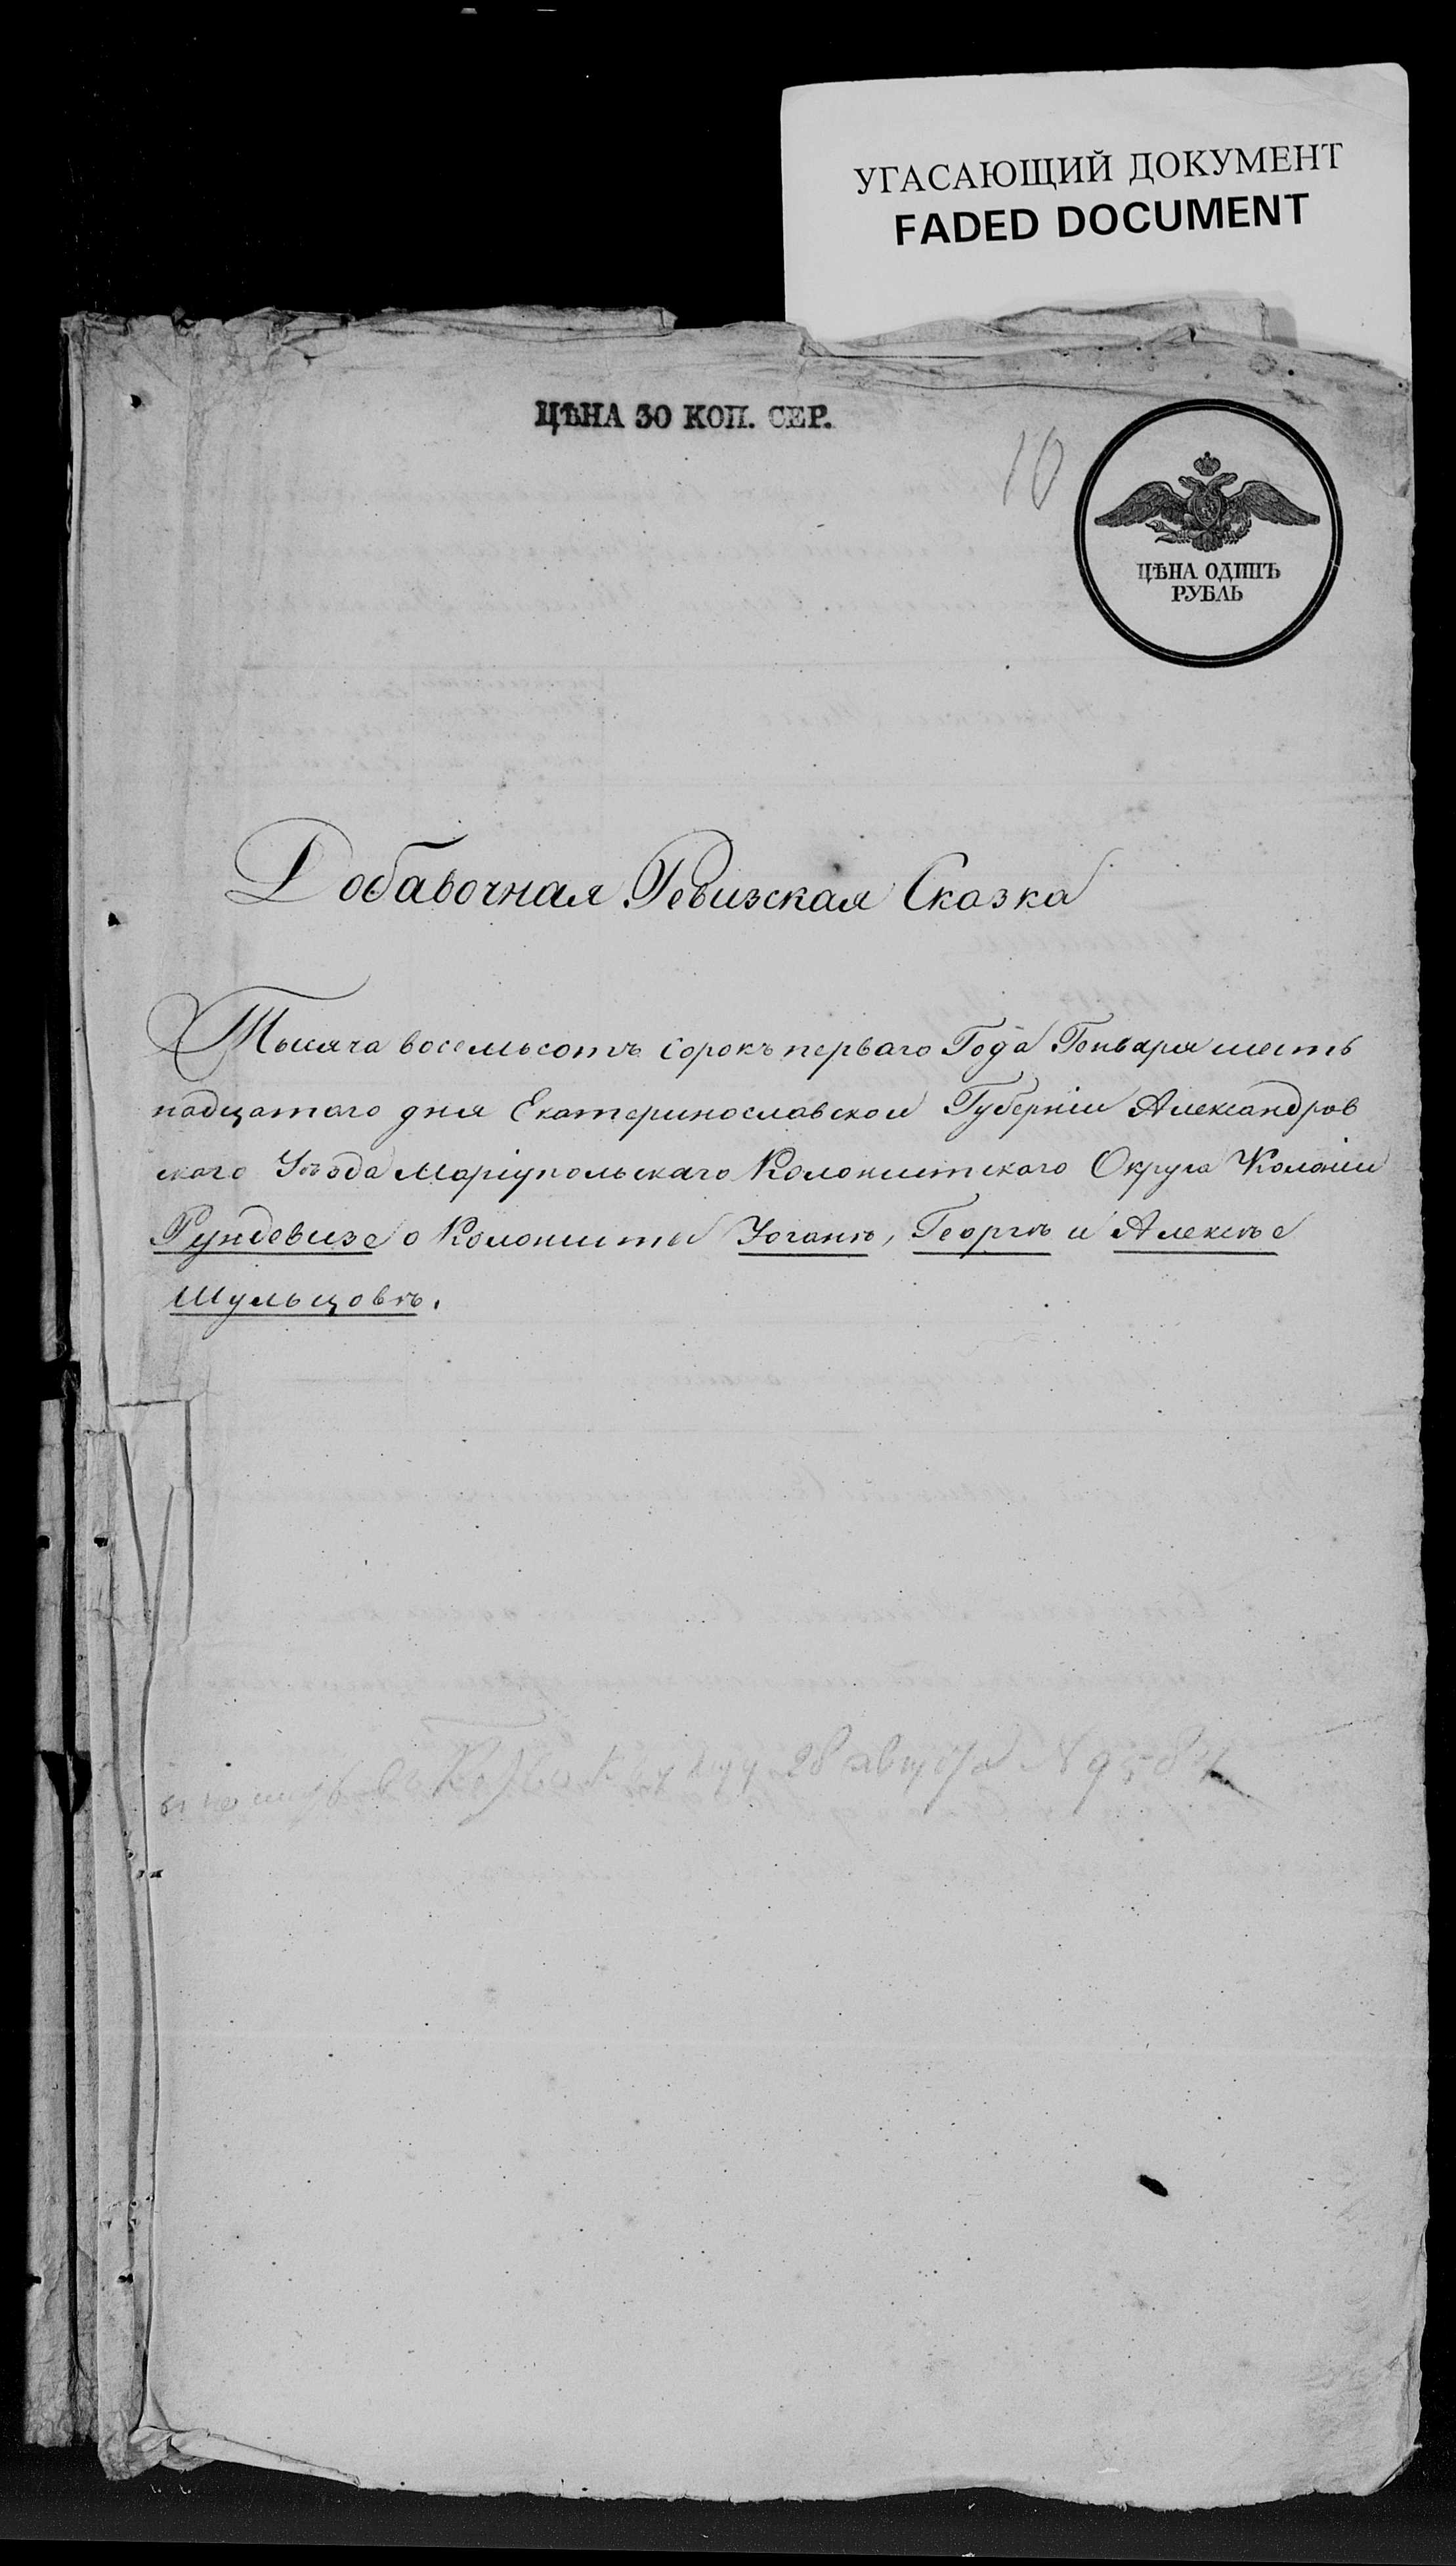 УГАСАЮЩИЙ ДОКУМЕНТ
FADED DOCUMENT
ЦѢНА 30 КОП. СЕР.
10
ЦѢНА ОДИНЪ
РУБЛЬ
Добавочная Ревизская Сказка
Тысяча восемьсотъ сорокъ перваго Года Генваря шесть
надцатаго дня Екатеринославской Губерніи Александров
скаго Уѣзда Маріупольскаго Колонистскаго Округа Колоніи
Рундевизе о Колонисты Іоганѣ, Георгѣ и Алексѣе
Шульцовѣ.
28 августа N 9584